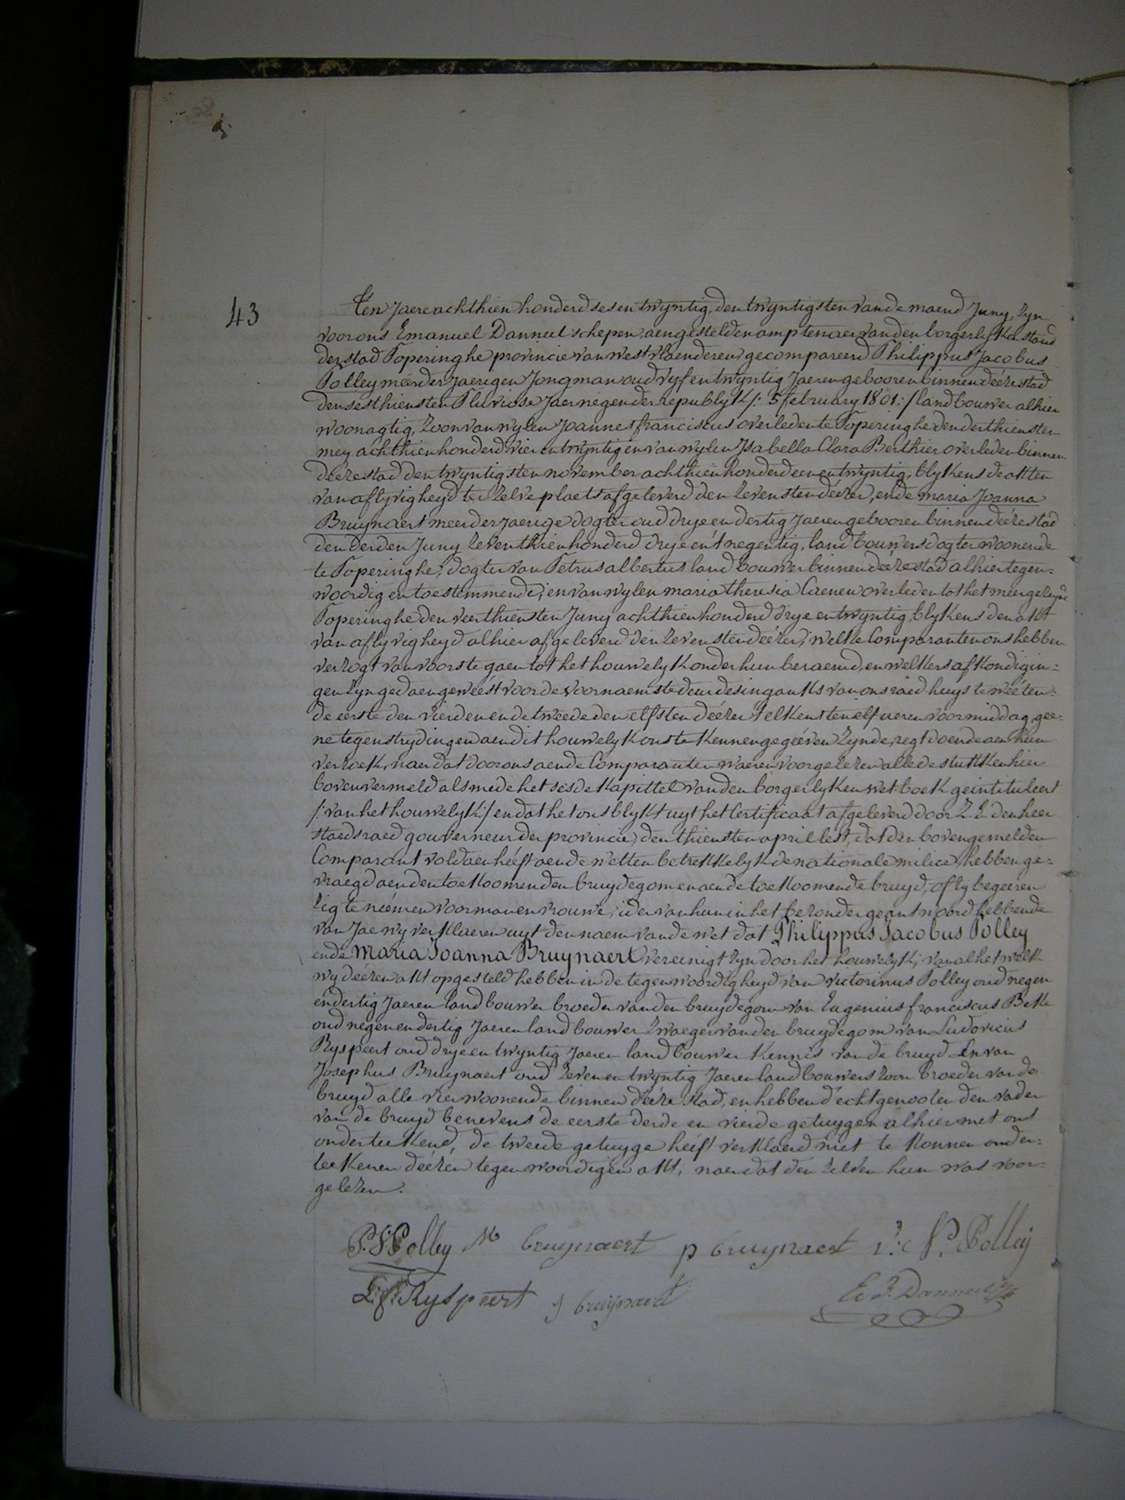 43
Ten Jaere achthien honderd ses en twyntig, den twyntigsten van de maend Juny, zyn
voor ons Emanuel Danneel schepen, aengestelden amptenaer van den borgerlyken stand
der stad Poperinghe provincie van westvlaenderen gecompareerd Philippus Jacobus
Polley meerderjaerigen Jongman oud vyf en twyntig Jaeren gebooren binnen déeze stad
den sesthiensten Pluviose Jaer negen der Republyk /: 5 february 1801:/ landbouwer alhier
woonagtig, zoon van wylen Joannes franciscus overleden te Poperinghe den derthiensten
mey achthien honderd vier en twyntig en van wylen Isabella Clara Berthier overleden binnen
déeze stad den twyntigsten november achthien honderd een en twyntig, blykens de akten
van aflyvigheyd ter zelve plaets afgeleverd den zevensten déézer, ende maria Joanna
Bruynaert meerderjaerige dogter oud drye en dertig Jaeren gebooren binnen déeze stad
den derden Juny zeventhien honderd drye en't negentig, landbouwers dogter woonende
te Poperinghe, dogter van Petrus albertus landbouwer binnen deeze stad alhier tegen-
woordig en toestemmende, en van wylen maria theresia Caenen overleden tot het meergelyd
Poperinghe den veerthiensten Juny achthien honderd drye en twyntig, blykens den akt
van aflyvigheyd alhier afgeleverd den zevensten déézer, welke Comparanten ons hebben
verzogt van voorste gaen tot het houwelyk onder hun beraemd, en welkers afkondigin-
gen zyn gedaen geweést voor de voornaemste deur des ingankts van ons raedhuys te weéten:
de eerste den vierden en de tweede den elfsten déézer telkens ten elf ueren voormiddag, gee-
ne tegenstrydingen aen dit houwelyk ons te kennen gegééven zynde, regt doende aen hun
verzoek, naer dat door ons aen de Comparanten waeren voorgelezen alle de stukken hier
boven vermeld als mede het sesde kapittel van den borgerlyken wetboek geintituleert
/:van het houwelyk:/ en dat het ons blykt uyt het Certificaat afgeleverd door Z.E. den heer
staedsraed gouverneur der provincie, den thiensten april lest, dat den bovengemelden
Comparant voldaen heeft aen de wetten betrekkelyk de nationale milicie, hebben ge-
vraegd aen den toekoomenden bruydegom en aen de toekoomende bruyd, of zy begeeren
zig te neémen voor man en vrouwe, ider van hun in het bezonder geantwoord hebbende
van Jae wy verklaeren uyt den naem van de wet dat Philippus Jacobus Polley
ende Maria Joanna Bruynaert vereenigt zyn door het houwelyk, van al het welk
wy déézen akt opgesteld hebben in de tegenwoordigheyd van victorinus Polley oud negen
en dertig Jaeren landbouwer broeder van den bruydegom van Eugenius franciscus Bekk
oud negen en dertig Jaeren landbouwer zwaeger van den bruydegom van Ludovicus
Ryspeert oud drye en twyntig Jaeren landbouwer kennis van de bruyd En van
Josephus Bruynaert oud zeven en twyntig Jaeren landbouwers zoon broeder van de
bruyd alle vier woonende binnen déeze stad, en hebben d'echtgenooten den vader
van de bruyd benevens de eerste derde en vierde getuygen alhier met ons
onderteekend, de tweede getuyge heéft verklaerd niet te konnen onder-
teekenen déézen tegenwoordigen akt, naer dat den zelven hun was voor-
gelezen.
P.J. Polley M bruynaert p bruynaert v: N. Polleij
L:F: Ryspeert J bruynaert E. J. Danneel